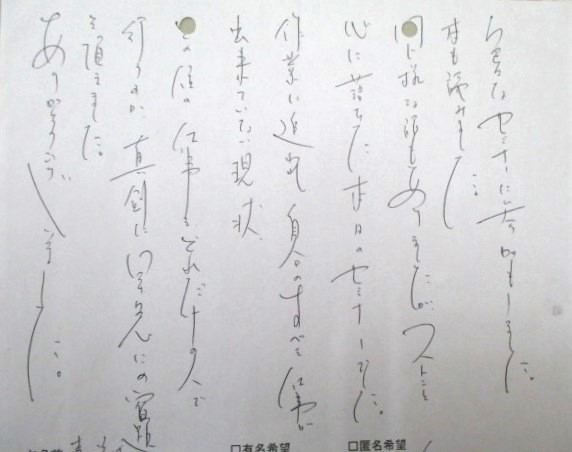 いろいろなセミナーに参加もしました。
本も読みました。
同じ様な話もありましたが、ストンと
心に落ちた本日のセミナーでした。
作業に追われ自分のすべき仕事が
出来ていない現状、
この仕事を、どれだけの人で
行うか、真剣に
を頂きました。
ありがとうございました。
□有名希望
□匿名希望